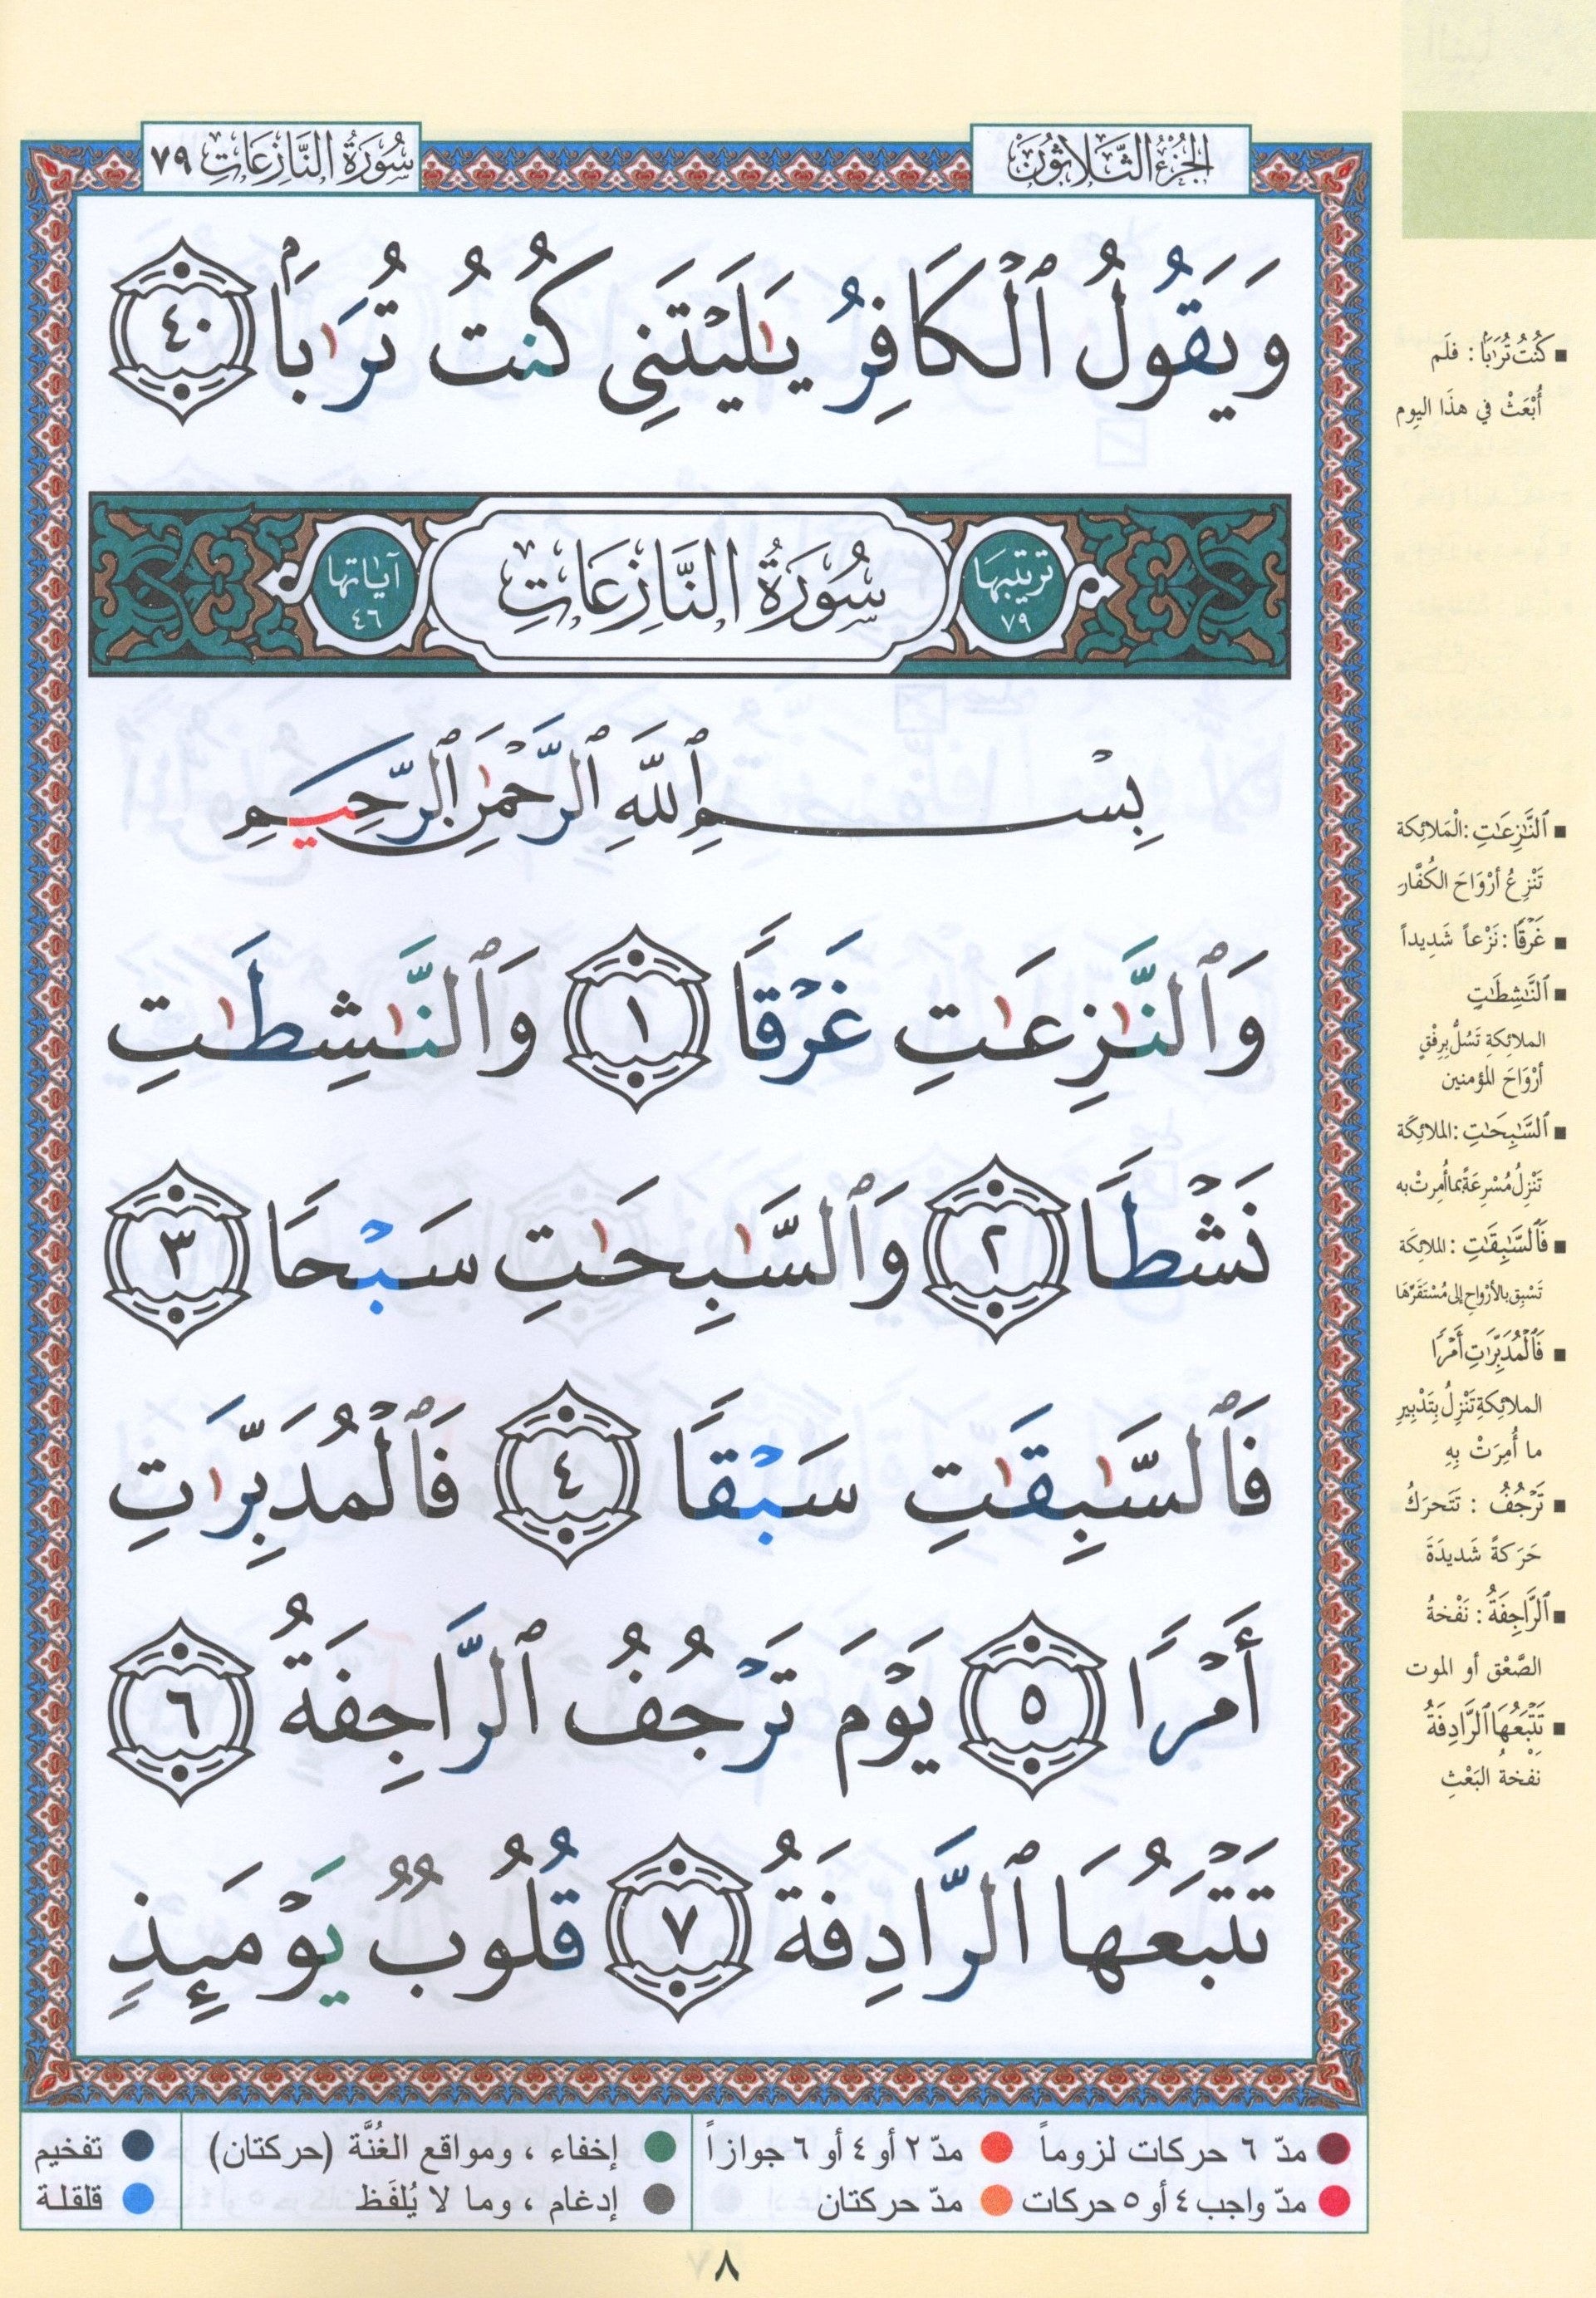 الجُزْءُ الثَّلَاثُونَ
سُورَةُ النَّازِعَاتِ ٧٩
وَيَقُولُ ٱلْكَافِرُ يَٰلَيْتَنِى كُنتُ تُرَٰبَۢا ٤٠
تَرتيبها ٧٩
سُورَةُ النَّازِعَاتِ
آيَاتها ٤٦
بِسْمِ ٱللَّهِ ٱلرَّحْمَٰنِ ٱلرَّحِيمِ
وَٱلنَّٰزِعَٰتِ غَرْقًا ١ وَٱلنَّٰشِطَٰتِ
نَشْطًا ٢ وَٱلسَّٰبِحَٰتِ سَبْحًا ٣
فَٱلسَّٰبِقَٰتِ سَبْقًا ٤ فَٱلْمُدَبِّرَٰتِ
أَمْرًا ٥ يَوْمَ تَرْجُفُ ٱلرَّاجِفَةُ ٦
تَتْبَعُهَا ٱلرَّادِفَةُ ٧ قُلُوبٌ يَوْمَئِذٍ
كُنتُ تُرَٰبًا : فلَم
أُبْعَثْ في هذَا اليوم
ٱلنَّٰزِعَٰتِ : الْمَلائِكة
تَنْزِعُ أرْوَاحَ الكُفَّار
غَرْقًا : نَزْعاً شَدِيداً
ٱلنَّٰشِطَٰتِ
الملائِكةِ تَسُلُّ بِرِفْقٍ
أرْوَاحَ المؤمنين
ٱلسَّٰبِحَٰتِ : الملائِكَة
تَنْزِلُ مُسْرِعَةً بما أُمِرتْ به
فَٱلسَّٰبِقَٰتِ : الملائِكَة
تَسْبِق بالأرْوَاحِ إلى مُسْتَقَرِّهَا
فَٱلْمُدَبِّرَٰتِ أَمْرًا
الملائِكةِ تَنْزِلُ بِتَدْبِيرِ
ما أُمِرَتْ بِهِ
تَرْجُفُ : تَتَحركُ
حَرَكةً شَديدَةً
ٱلرَّاجِفَةُ : نَفْخةُ
الصَّعْق أو الموت
تَتْبَعُهَا ٱلرَّادِفَةُ
نَفْخةُ البَعْثِ
مدّ ٦ حركات لزوماً مدّ ٢ أو ٤ أو ٦ جوازاً إخفاء ، ومواقع الغُنَّة (حركتان) تفخيم
مدّ واجب ٤ أو ٥ حركات مدّ حركتان إدغام ، وما لا يُلفَظ قلقلة
٨